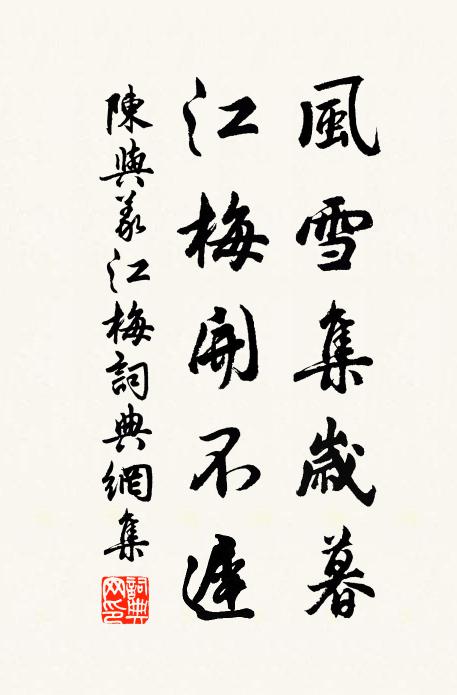 風雪集歲暮
江梅開不遲
陳與義江梅詞典網集
詞典網印